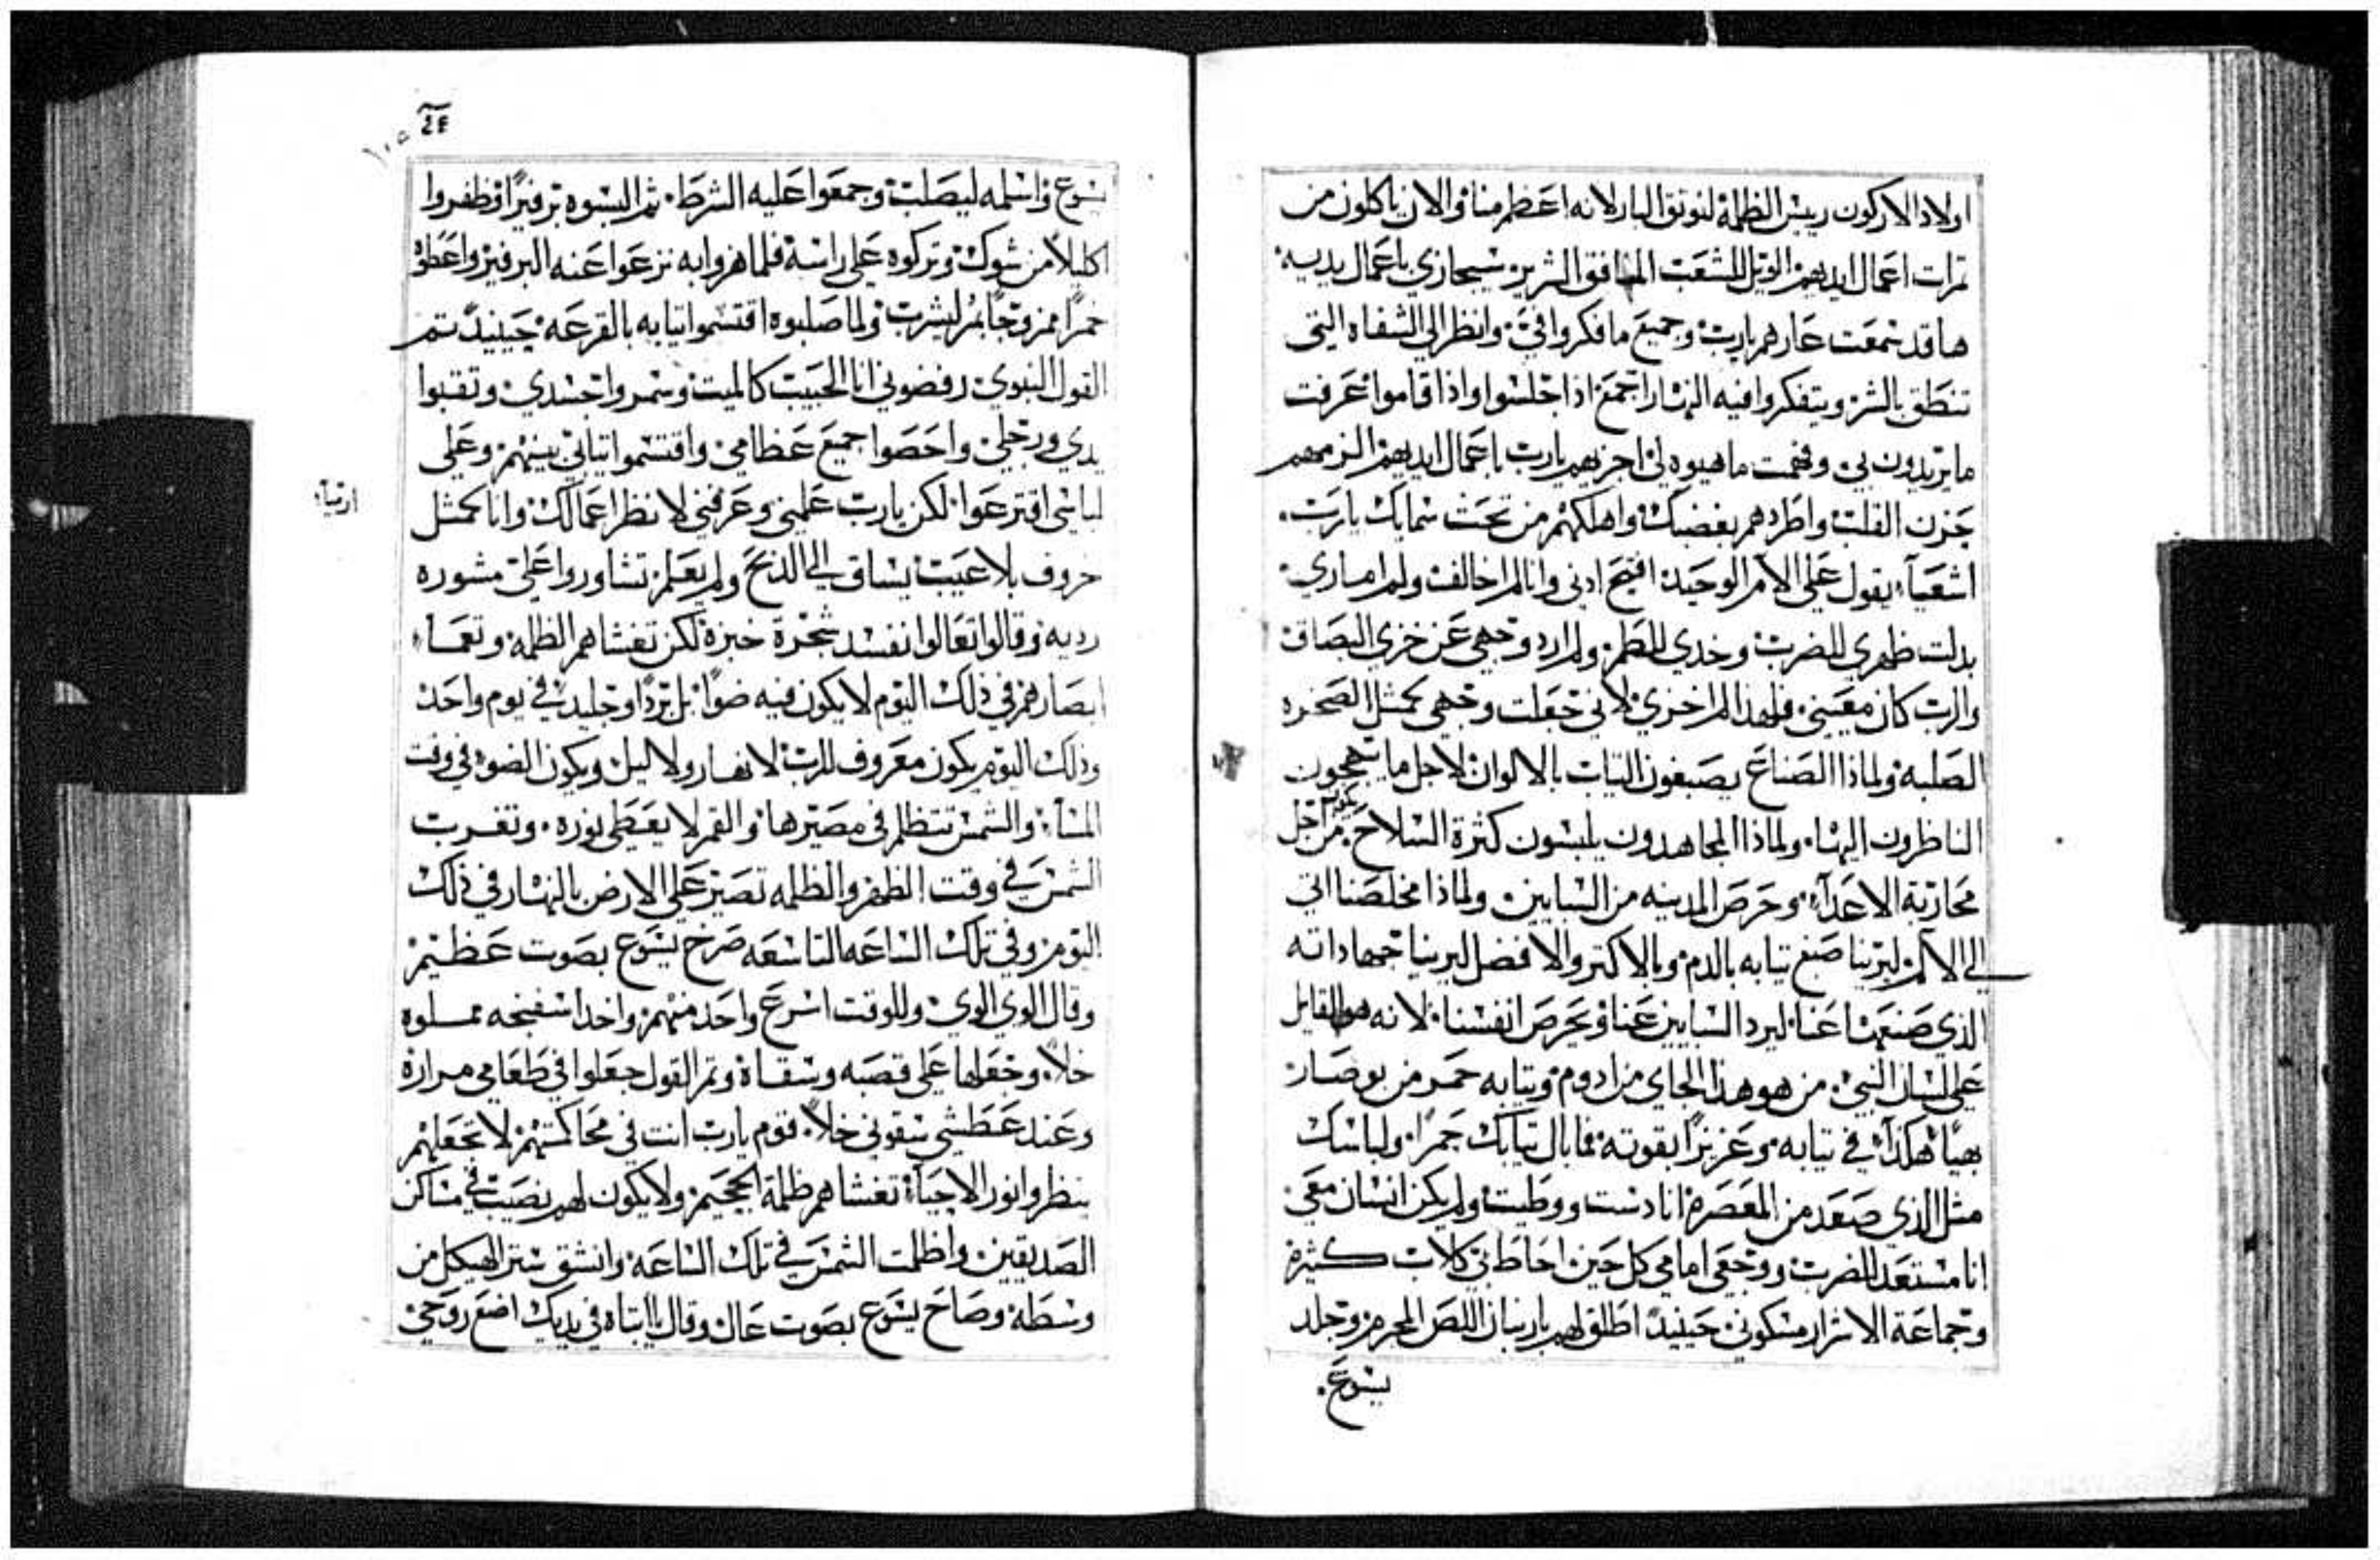 اولاد الاركون رييس الظلمة لنوثق البار لانه اعظم منا والان ياكلون من
ثمرات اعمال ايديهم الويل للشعب المنافق الشرير سيجازي باعمال يديه
ها قد سمعت عارهم يارب وجميع ما فكروا فيَّ وانظر الي الشفاه التي
تنطق بالشر ويتفكروا فيه النهار اجمع اذا جلسوا واذا قاموا عرفت
ما يريدون بي وفهمت ما هيوه لي اجزيهم يارب باعمال ايديهم الزمهم
حزن القلب واطردهم بغضبك واهلكهم من تحت سمايك يارب
اشعيآء يقول علي الامر الوحيد افتح ادني وانا لم اخالف ولم اماري
بدلت ظهري للضرب وخدي للطم ولم ارد وجهي عن خزي البصاق
والرب كان معيني فلهذا لم اخزي لاني جعلت وجهي كمثل الصخره
الصلبه ولماذا الصناع يصبغون التياب بالالوان لاجل ما يتهجون
الناظرون اليها ولماذا المجاهدون يلبسون كثرة السلاح من اجل
محاربة الاعدآء وحرص المدينه من السبايين ولماذا مخلصنا اتي
الي الالم ليرينا صبغ تيابه بالدم وبالاكتر والافضل ليرينا جهاداته
الذي صنعها عنا ليرد السبايين عنا ويحرص انفسنا لانه هو القايل
علي لسان النبي من هو هذا الجاي من ادوم وتيابه حمر من بوصار
بهيا هكذا في تيابه وعزيزا بقوته فما بال تيابك حمرا ولباسك
مثل الذي صعد من المعصرة انا دست ووطيت ولم يكن انسان معي
انا مستعد للضرب ووجعي امامي كل حين احاط بي كلاب كثيرة
وجماعة الاشرار مسكوني حينيد اطلق لهم باربنان اللص المجرم وجلد
يسوع
٢٤
يسوع واسلمه ليصلب وجمعوا عليه الشرط ثم البسوه برفيرا وظفروا
اكليلا من شوك وتركوه علي راسه فلما هزوا به نزعوا عنه البرفير واعطوه
خمرا ممزوجا بمر ليشرب ولما صلبوه اقتسموا تيابه بالقرعه حينيد تم
القول النبوي رفضوني انا الحبيب كالميت وسمروا جسدي وتقبوا
يدي ورجلي واحصوا جميع عظامي واقتسموا تيابي بينهم وعلي
لباسي اقترعوا لكن يارب علمني وعرفني لانظر اعمالك وانا كمثل
ارميا
خروف بلا عيب يساق الي الذبح ولم يعلم تشاوروا علي مشوره
رديه وقالوا تعالوا نفسد شجرة خبزه لكن تغشاهم الظلمه وتعمآء
ابصارهم في ذلك اليوم لا يكون فيه ضوا بل بردا وجليد في يوم واحد
وذلك اليوم يكون معروف للرب لا نهار ولا ليل ويكون الضو في وقت
المسآء والشمس تنظلم في مصيرها والقمر لا يعطي نوره وتغرب
الشمس في وقت الظهر والظلمه تصير علي الارض بالنهار في ذلك
اليوم وفي تلك الساعه التاسعه صرخ يسوع بصوت عظيم
وقال الوي الوي وللوقت اسرع واحد منهم واخد اسفنجه مملوه
خلا وجعلها علي قصبه وسقاه وتم القول جعلوا في طعامي مراره
وعند عطشي سقوني خلا قوم يارب انت في محاكمتهم لا تجعلهم
ينظروا نور الاحيآء تغشاهم ظلمة الجحيم ولا يكون لهم نصيب في مساكن
الصديقين واظلمت الشمس في تلك الساعه وانشق ستر الهيكل من
وسطه وصاح يسوع بصوت عال وقال يا ابتاه في يديك اضع روحي